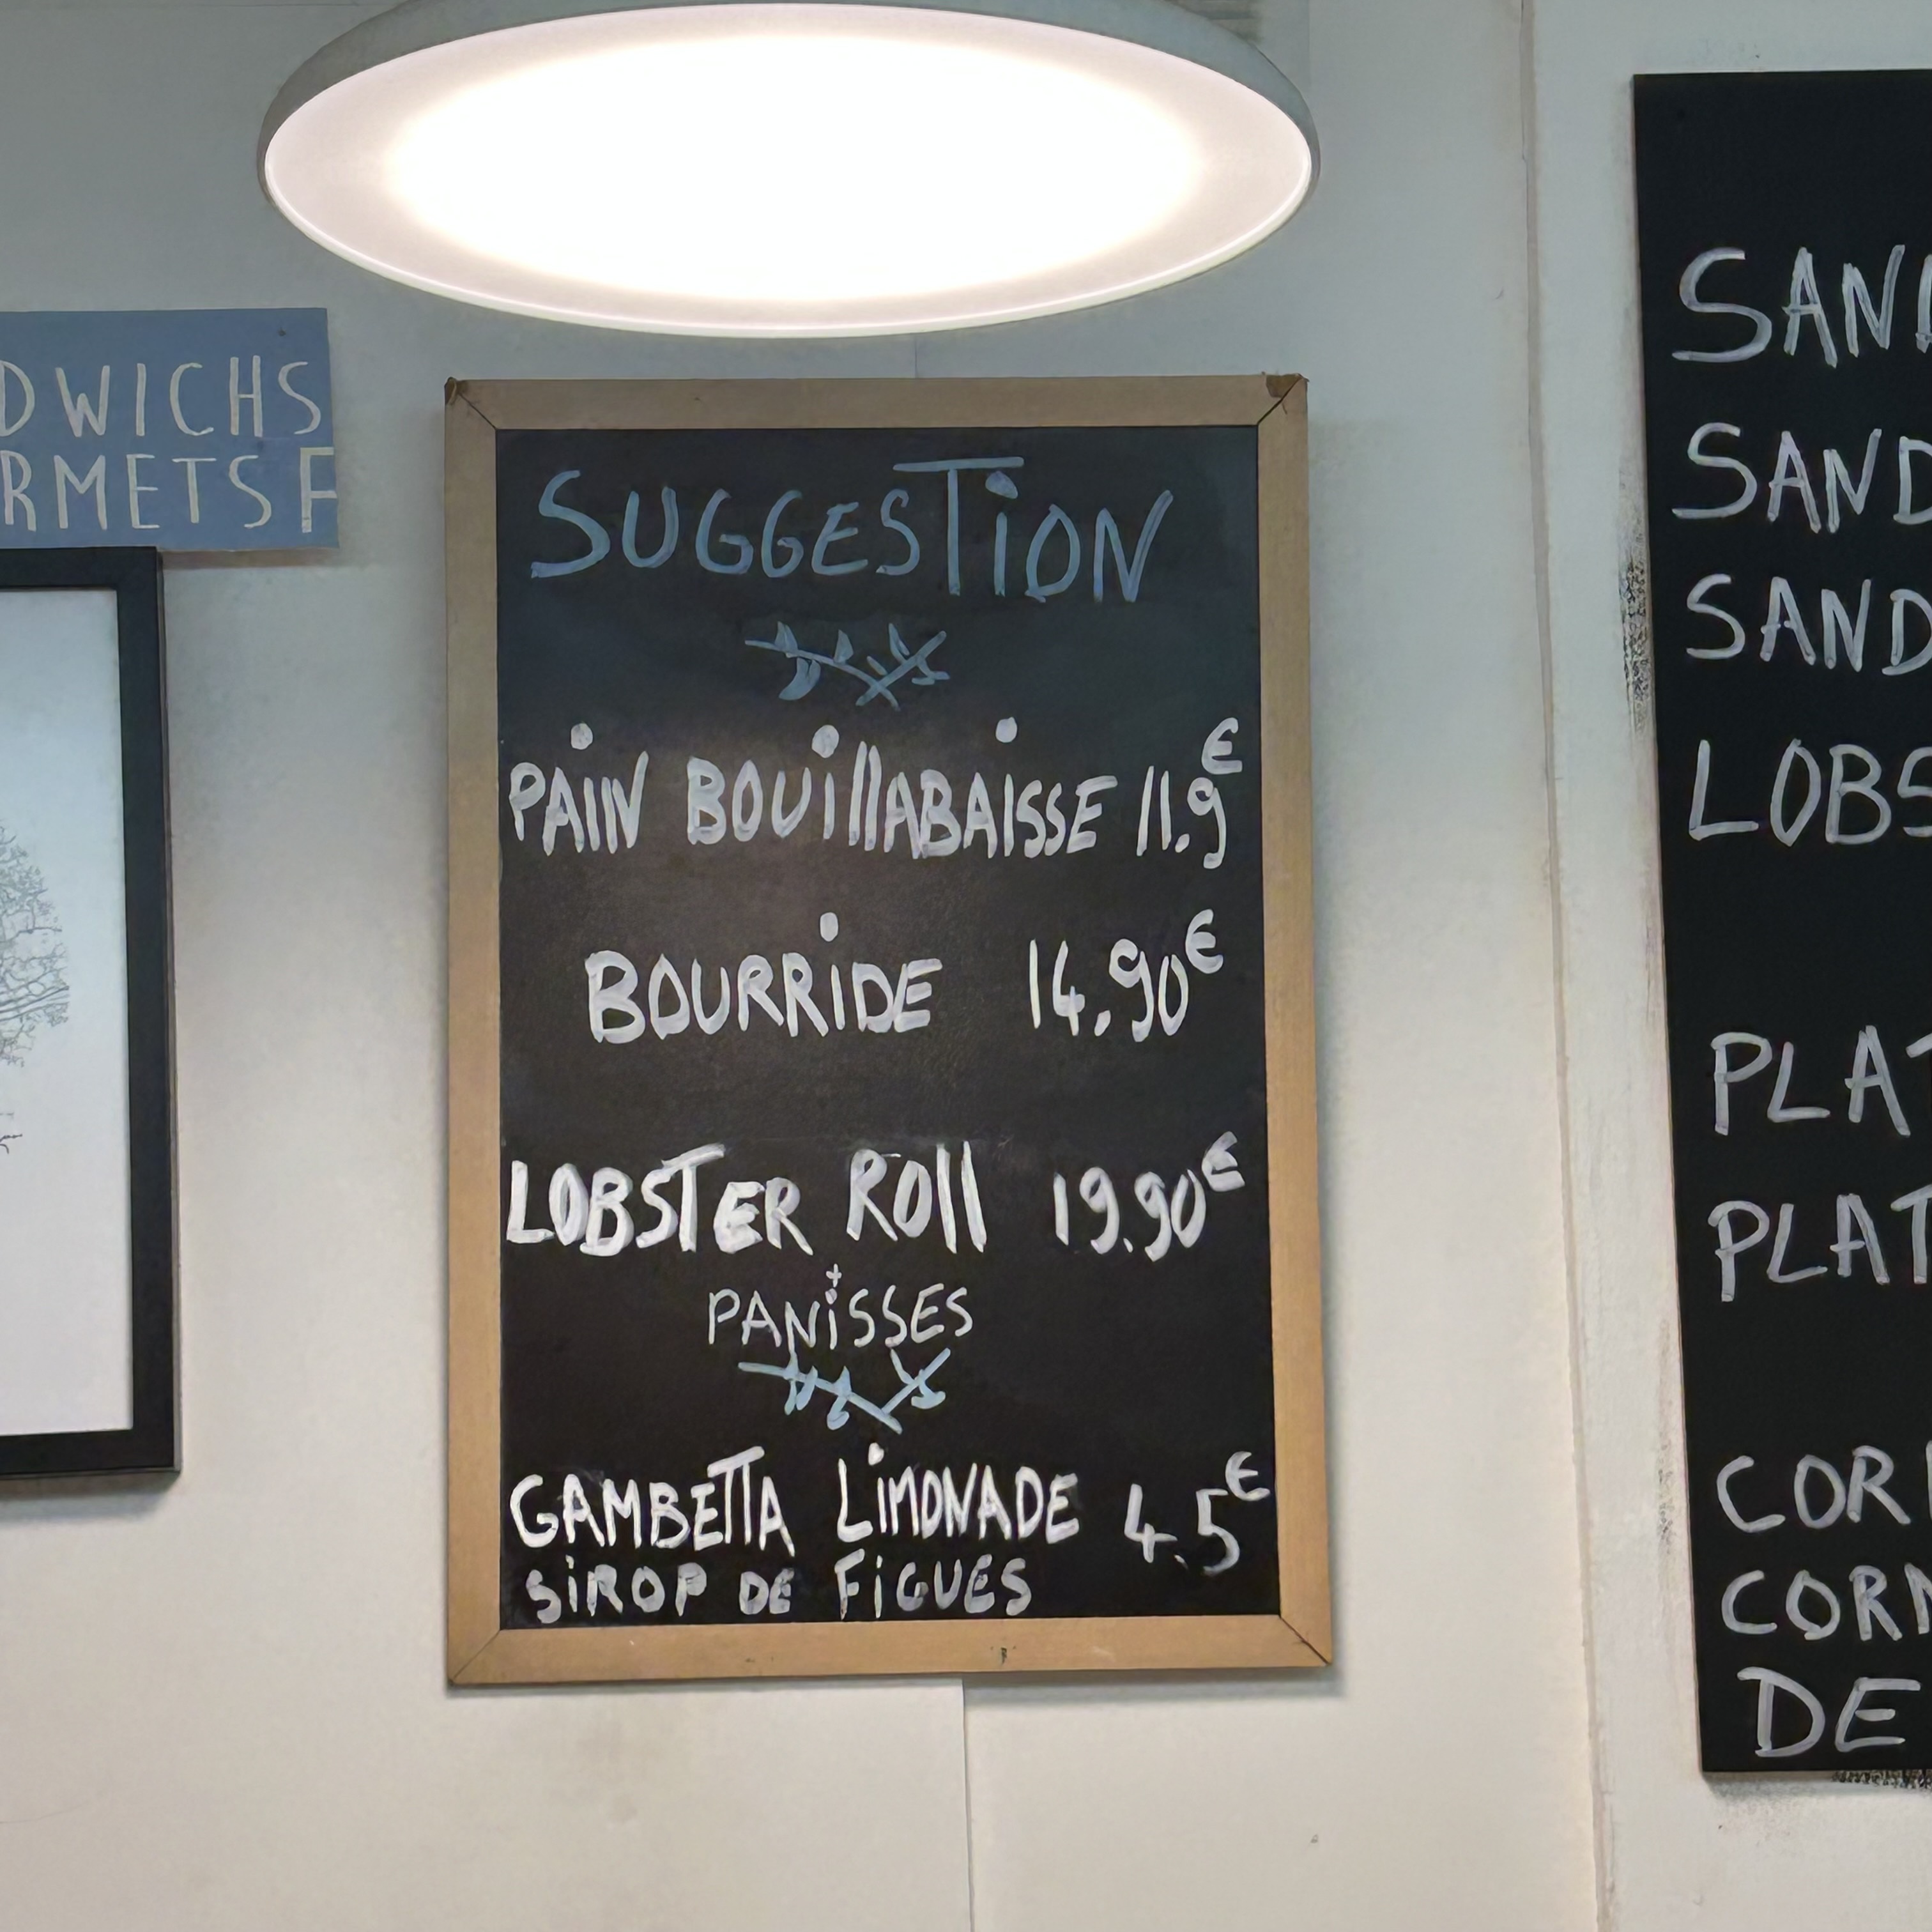 DWICHS
RMETS F
SUGGESTION
PAIN BOUILLABAISSE 11.9€
BOURRIDE 14.90€
LOBSTER ROLL 19.90€
+
PANISSES
GAMBETTA LIMONADE 4.5€
SIROP DE FIGUES
SAN
SAND
SAND
LOBS
PLAT
PLAT
COR
CORN
DE